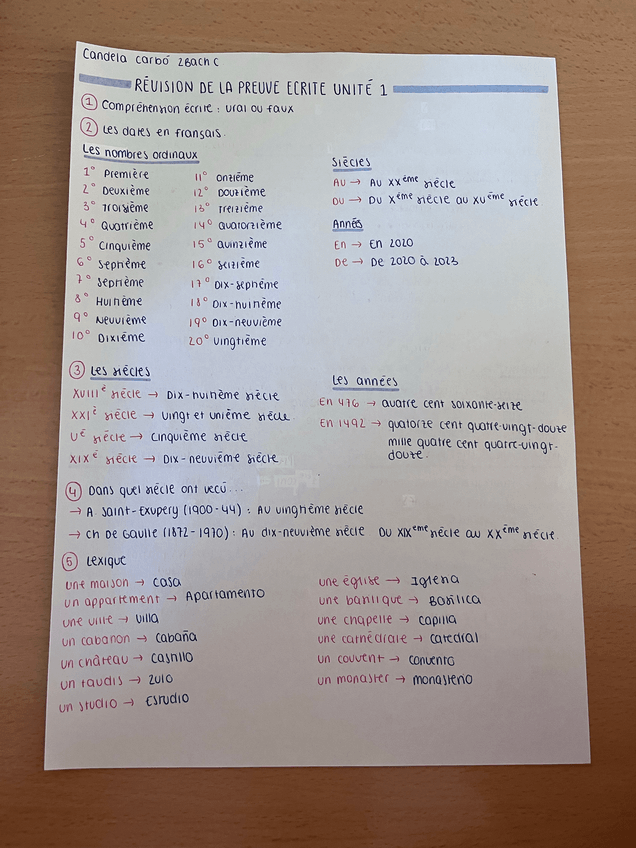 Candela Carbó 2Bach C
RÉVISION DE LA PREUVE ECRITE UNITÉ 1
① Compréhension écrite : vrai ou faux
② Les dates en français.
Les nombres ordinaux
1° Première
2° Deuxième
3° Troisième
4° Quatrième
5° Cinquième
6° Septième
7° Septième
8° Huitième
9° Neuvième
10° Dixième
11° Onzième
12° Douzième
13° Treizième
14° Quatorzième
15° Quinzième
16° Seizième
17° Dix-septième
18° Dix-huitième
19° Dix-neuvième
20° Vingtième
Siècles
AU → AU XXème siècle
DU → DU Xème siècle au XVème siècle
Années
En → En 2020
De → De 2020 à 2023
③ Les siècles
XVIIIè siècle → Dix-huitième siècle
XXIè siècle → Vingt et unième siècle
Vè siècle → Cinquième siècle
XIXè siècle → Dix-neuvième siècle
Les années
En 476 → quatre cent soixante-seize
En 1492 → quatorze cent quatre-vingt-douze
mille quatre cent quatre-vingt-
douze.
④ Dans quel siècle ont vécu...
→ A. Saint-Exupery (1900-44) : Au vingtième siècle
→ Ch De Gaulle (1872-1970) : Au dix-neuvième siècle DU XIXème siècle au XXème siècle
⑤ Lexique
une maison → casa
un appartement → Apartamento
une ville → Villa
un cabanon → cabaña
un château → castillo
un taudis → zulo
un studio → Estudio
une église → Iglesia
une basilique → Basílica
une chapelle → capilla
une cathédrale → catedral
un couvent → convento
un monaster → monasterio